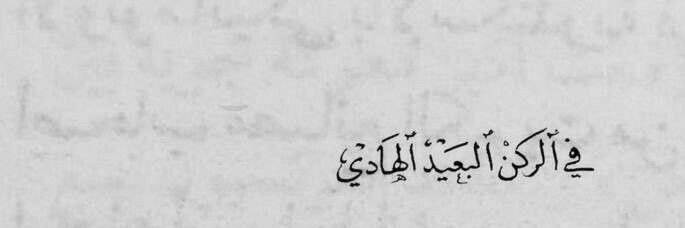 في ٱلركنْ ٱلبعَيْدْ ٱلهَادي